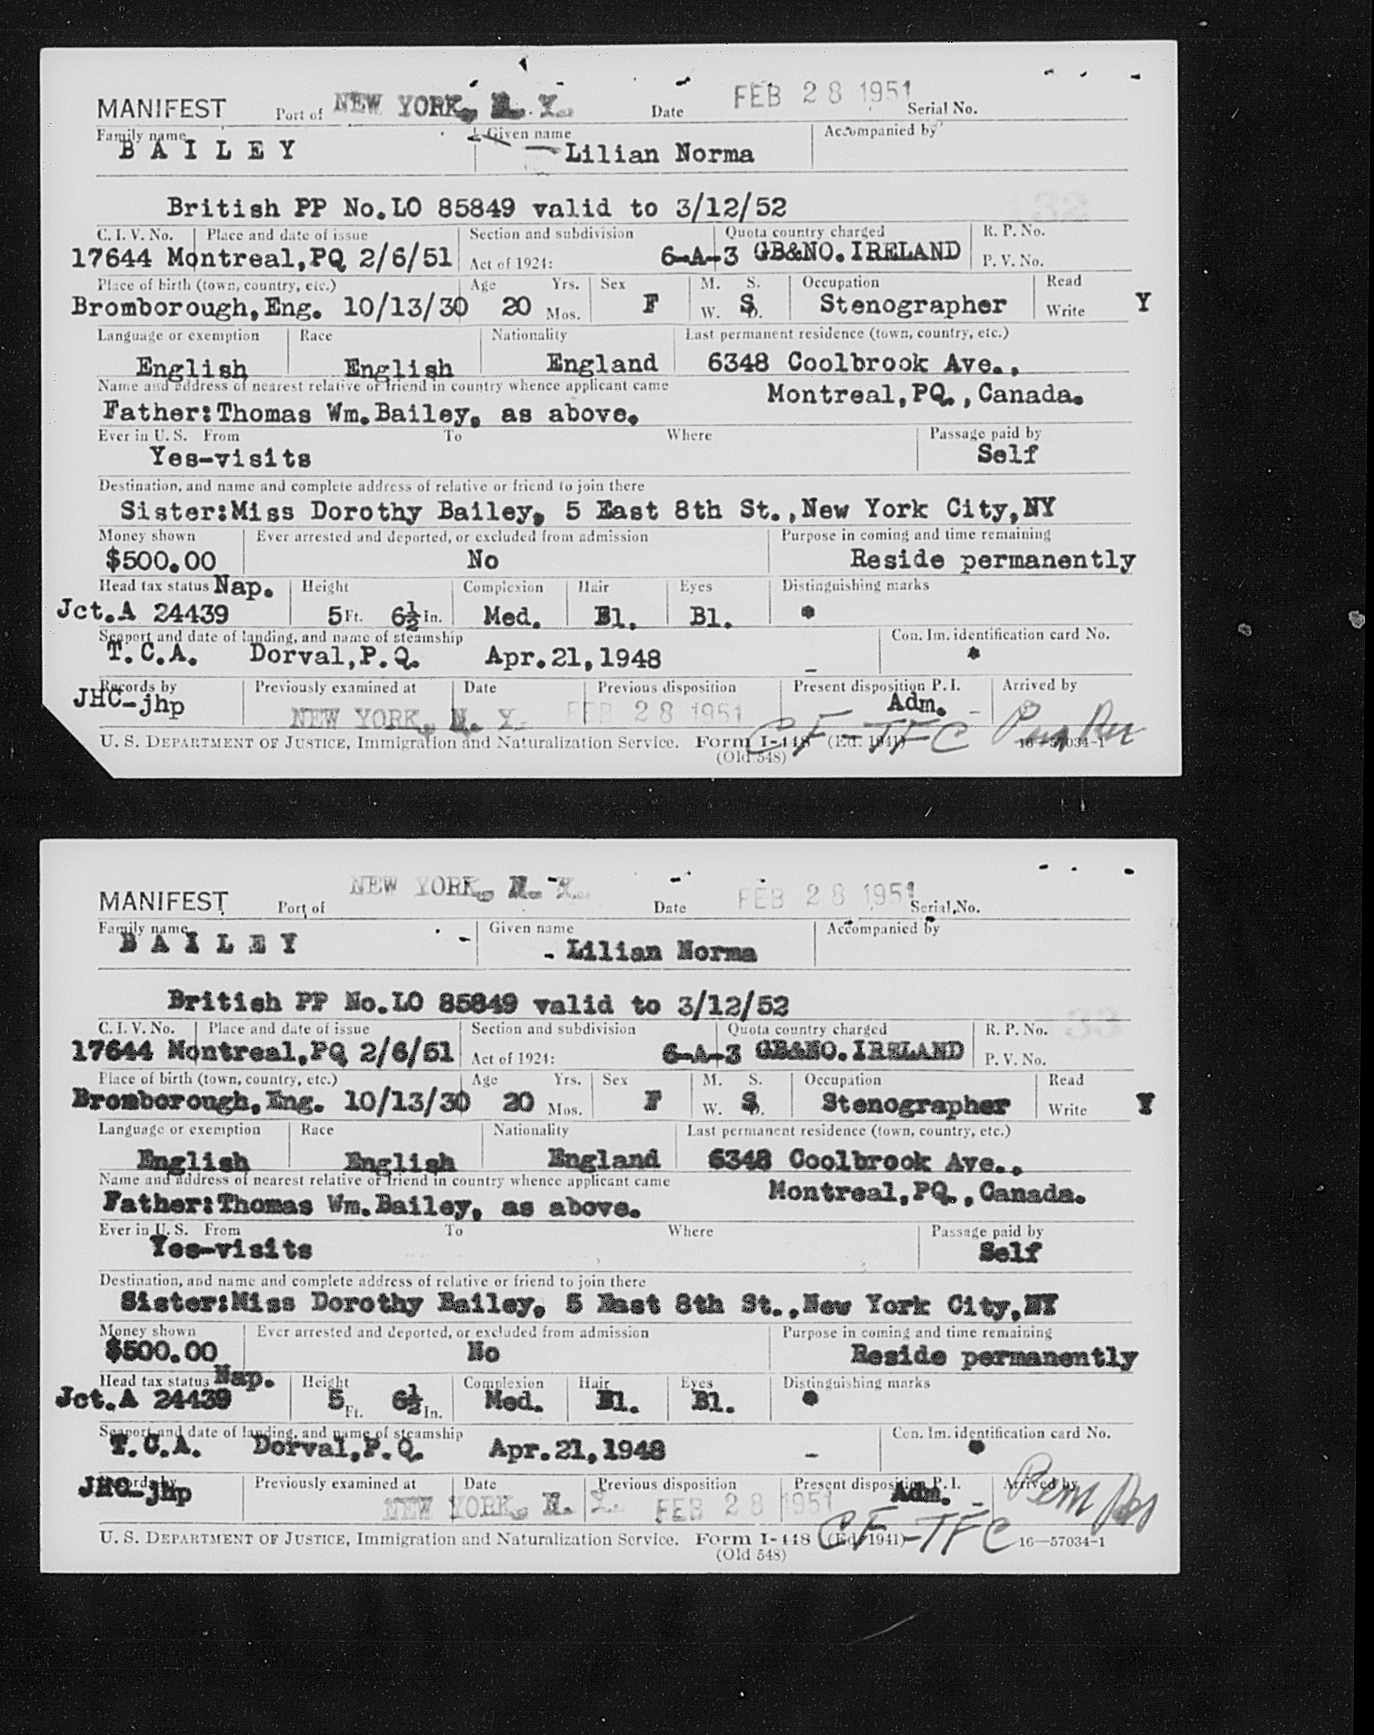 MANIFEST Port of NEW YORK, N. Y. Date FEB 28 1951 Serial No.
Family name Given name Accompanied by
BAILEY Lilian Norma
British PP No.LO 85849 valid to 3/12/52
C. I. V. No. Place and date of issue Section and subdivision Quota country charged R. P. No.
17644 Montreal,PQ 2/6/51 Act of 1924: 6-A-3 GB&NO.IRELAND P. V. No.
Place of birth (town, country, etc.) Age Yrs. Sex M. S. Occupation Read
Bromborough,Eng. 10/13/30 20 Mos. F W. S D. Stenographer Write Y
Language or exemption Race Nationality Last permanent residence (town, country, etc.)
English English England 6348 Coolbrook Ave.,
Name and address of nearest relative or friend in country whence applicant came Montreal,PQ.,Canada.
Father:Thomas Wm.Bailey, as above.
Ever in U. S. From To Where Passage paid by
Yes-visits Self
Destination, and name and complete address of relative or friend to join there
Sister:Miss Dorothy Bailey, 5 East 8th St.,New York City,NY
Money shown Ever arrested and deported, or excluded from admission Purpose in coming and time remaining
$500.00 No Reside permanently
Head tax status Nap. Height Complexion Hair Eyes Distinguishing marks
Jct.A 24439 5 Ft. 6½ In. Med. Bl. Bl.
Seaport and date of landing, and name of steamship Con. Im. identification card No.
T.C.A. Dorval,P.Q. Apr.21,1948 -
Records by Previously examined at Date Previous disposition Present disposition P. I. Arrived by
JHC-jhp NEW YORK, N. Y. FEB 28 1951 Adm. - CF-TFC
U. S. DEPARTMENT OF JUSTICE, Immigration and Naturalization Service. Form I-448 (Ed. 1941) 16—57034-1
(Old 548)
MANIFEST Port of NEW YORK, N. Y. Date FEB 28 1951 Serial No.
Family name Given name Accompanied by
BAILEY Lilian Norma
British PP No.LO 85849 valid to 3/12/52
C. I. V. No. Place and date of issue Section and subdivision Quota country charged R. P. No.
17644 Montreal,PQ 2/6/51 Act of 1924: 6-A-3 GB&NO.IRELAND P. V. No.
Place of birth (town, country, etc.) Age Yrs. Sex M. S. Occupation Read
Bromborough,Eng. 10/13/30 20 Mos. F W. S D. Stenographer Write Y
Language or exemption Race Nationality Last permanent residence (town, country, etc.)
English English England 6348 Coolbrook Ave.,
Name and address of nearest relative or friend in country whence applicant came Montreal,PQ.,Canada.
Father:Thomas Wm.Bailey, as above.
Ever in U. S. From To Where Passage paid by
Yes-visits Self
Destination, and name and complete address of relative or friend to join there
Sister:Miss Dorothy Bailey, 5 East 8th St.,New York City,NY
Money shown Ever arrested and deported, or excluded from admission Purpose in coming and time remaining
$500.00 No Reside permanently
Head tax status Nap. Height Complexion Hair Eyes Distinguishing marks
Jct.A 24439 5 Ft. 6½ In. Med. Bl. Bl.
Seaport and date of landing, and name of steamship Con. Im. identification card No.
T.C.A. Dorval,P.Q. Apr.21,1948 -
Records by Previously examined at Date Previous disposition Present disposition P. I. Arrived by
JHC-jhp NEW YORK, N. Y. FEB 28 1951 Adm. - CF-TFC
U. S. DEPARTMENT OF JUSTICE, Immigration and Naturalization Service. Form I-448 (Ed. 1941) 16—57034-1
(Old 548)